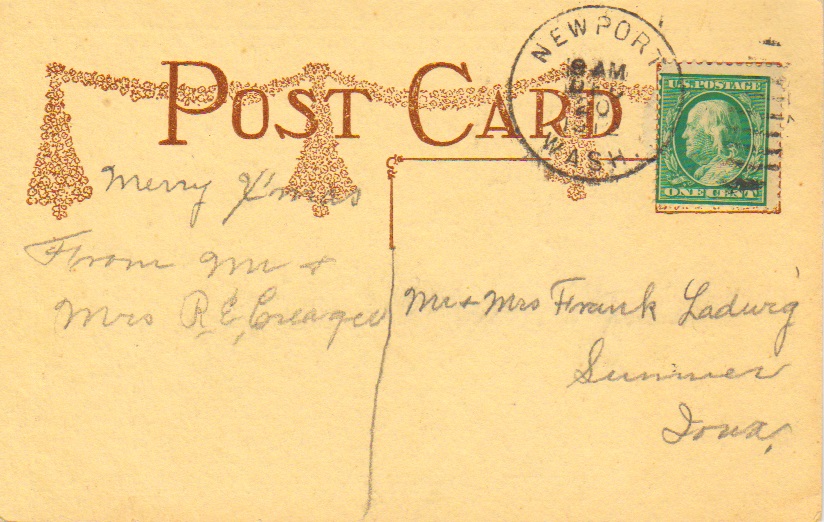 POST CARD
NEWPORT
8 AM
DEC
20
WASH
U.S. POSTAGE
ONE CENT
Merry X'mas
From Mr +
Mrs R.E. Creager
Mr + Mrs Frank Ladwig
Sumner
Iowa,